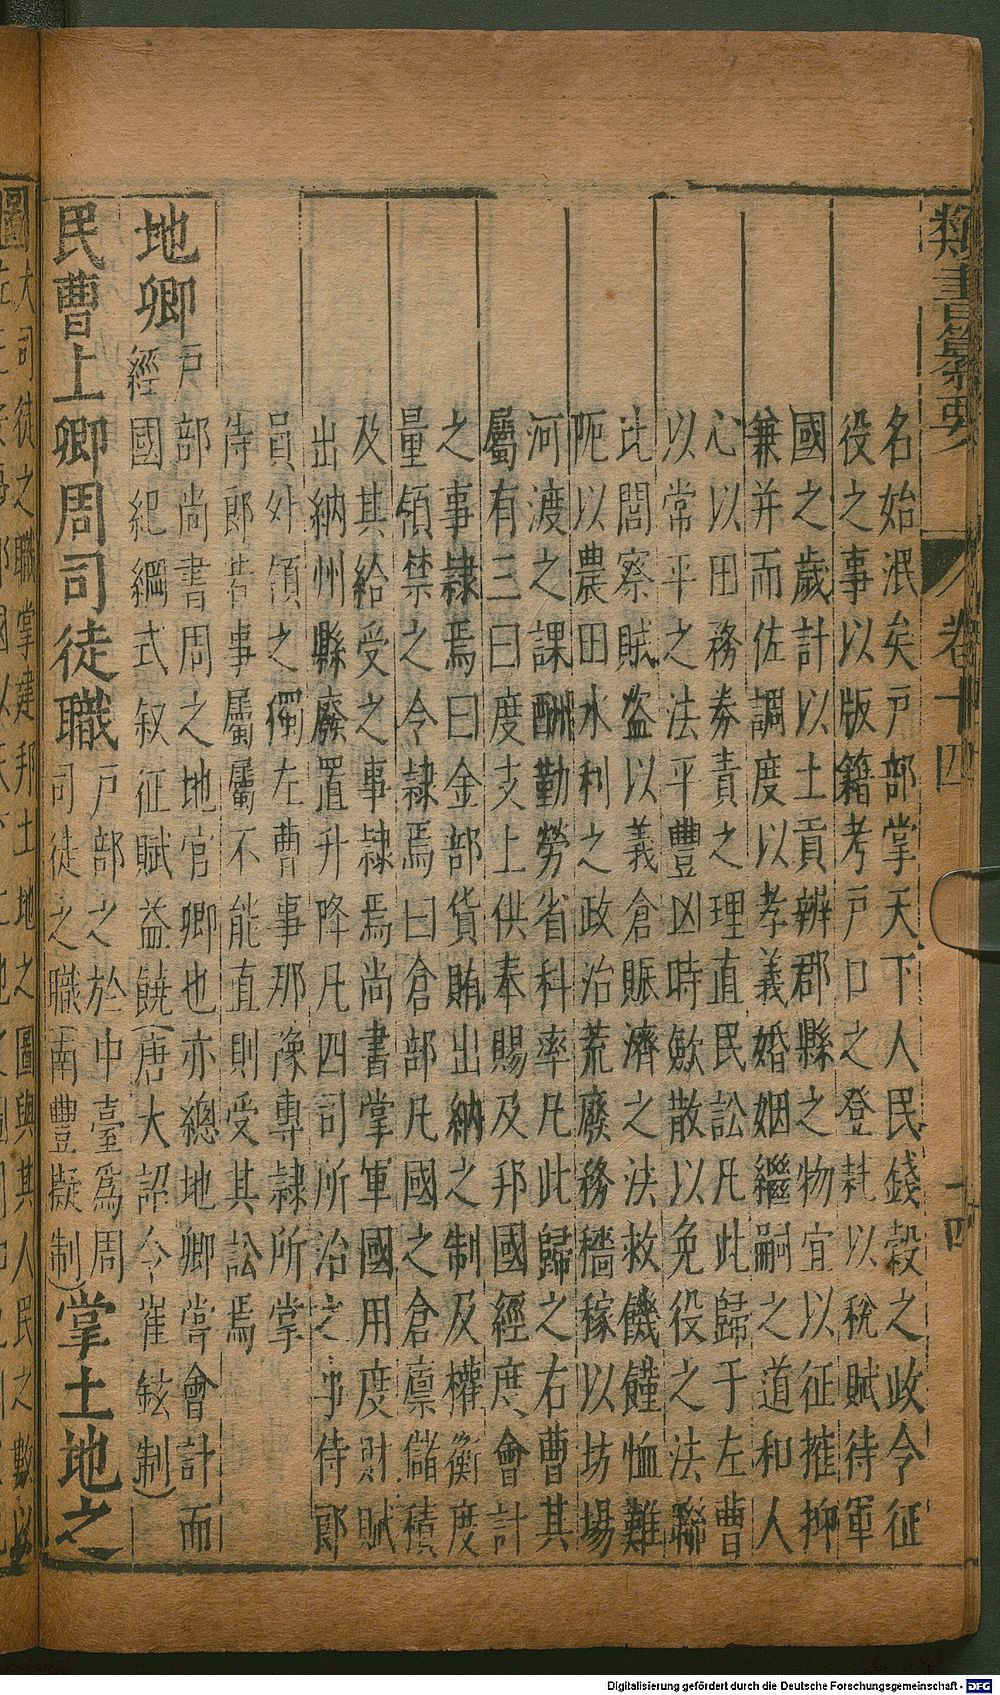 類書纂要 卷十四 十四
名始泯矣戸部掌天下人民錢穀之政令征
役之事以版籍考戸口之登耗以稅賦待軍
國之歲計以土貢辨郡縣之物宜以征搉抑
兼并而佐調度以孝義婚姻繼嗣之道和人
心以田務券責之理直民訟凡此歸于左曹
以常平之法平豐凶時歛散以免役之法聯
比閭察賊盗以義倉賑濟之法救饑饉恤難
阨以農田水利之政治荒廢務穡稼以坊場
河渡之課酬勤勞省科率凡此歸之右曹其
屬有三曰度支上供奉賜及邦國經度會計
之事隷焉曰金部貨賄出納之制及權衡度
量領禁之令隷焉曰倉部凡國之倉廪儲積
及其給受之事隷焉尚書掌軍國用度財賦
出納州縣廢置升降凡四司所治之事侍郎
員外領之獨左曹事那豫專隷所掌
侍郎若事屬屬不能直則受其訟焉
地卿 戸部尚書周之地官卿也亦總地卿嘗會計而
經國紀綱式叙征賦益饒(唐大詔令崔鉉制)
民曹上卿周司徒職 戸部之於中臺爲周
司徒之職(南豐擬制) 掌土地之
圖 大司徒之職掌建邦土地之圖與其人民之數以
Digitalisierung gefördert durch die Deutsche Forschungsgemeinschaft - DFG